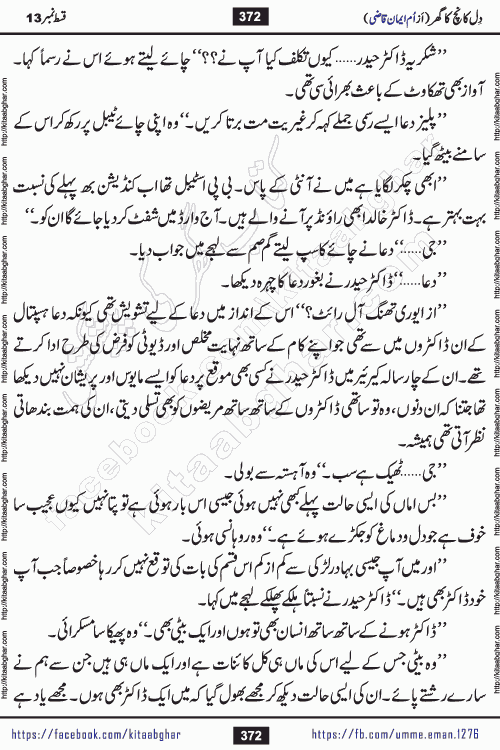 دِل کانچ کا گھر (از اُمِ ایمان قاضی) 372 قسط نمبر 13
’’شکریہ ڈاکٹر حیدر...... کیوں تکلف کیا آپ نے؟؟‘‘ چائے لیتے ہوئے اس نے رسماً کہا۔
آواز بھی تھکاوٹ کے باعث بھرائی سی تھی۔
’’پلیز دعا ایسے رسمی جملے کہہ کر غیریت مت برتا کریں۔‘‘ وہ اپنی چائے ٹیبل پر رکھ کر اس کے
سامنے بیٹھ گیا۔
’’ابھی چکر لگایا ہے میں نے آنٹی کے پاس۔ بی پی اسٹیبل تھا اب کنڈیشن بھ پہلے کی نسبت
بہت بہتر ہے۔ ڈاکٹر خالد ابھی راؤنڈ پر آنے والے ہیں۔ آج وارڈ میں شفٹ کر دیا جائے گا ان کو۔‘‘
’’جی......‘‘ دعا نے چائے کا سپ لیتے گم صم سے لہجے میں جواب دیا۔
’’دعا......‘‘ ڈاکٹر حیدر نے بغور دعا کا چہرہ دیکھا۔
’’از ایوری تھنگ آل رائٹ؟‘‘ اس کے انداز میں دعا کے لیے تشویش تھی کیونکہ دعا ہسپتال
کے ان ڈاکٹروں میں سے تھی جو اپنے کام کے ساتھ نہایت مخلص اور ڈیوٹی کو فرض کی طرح ادا کرتے
تھے۔ ان کے چار سالہ کیرئیر میں ڈاکٹر حیدر نے کسی بھی موقع پر دعا کو ایسے مایوس اور پریشان نہیں دیکھا
تھا جتنا کہ ان دنوں، وہ تو ساتھی ڈاکٹروں کے ساتھ ساتھ مریضوں کو بھی تسلی دیتی، ان کی ہمت بندھاتی
نظر آتی تھی ہمیشہ۔
’’جی...... ٹھیک ہے سب۔‘‘ وہ آہستہ سے بولی۔
’’بس اماں کی ایسی حالت پہلے کبھی نہیں ہوئی جیسی اس بار ہوئی ہے تو پتا نہیں کیوں عجیب سا
خوف ہے جو دل و دماغ کو جکڑے ہوئے ہے۔‘‘ وہ روہانسی ہوئی۔
’’اور میں آپ جیسی بہادر لڑکی سے کم از کم اس قسم کی بات کی توقع نہیں کر رہا خصوصاً جب آپ
خود ڈاکٹر بھی ہیں۔‘‘ ڈاکٹر حیدر نے نسبتاً ہلکے پھلکے لہجے میں کہا۔
’’ڈاکٹر ہونے کے ساتھ ساتھ انسان بھی تو ہوں اور ایک بیٹی بھی۔‘‘ وہ پھیکا سا مسکرائی۔
’’وہ بیٹی جس کے لیے اس کی ماں ہی کل کائنات ہے اور ایک ماں ہی ہیں جن سے ہم نے
سارے رشتے پائے۔ ان کی ایسی حالت دیکھ کر مجھے بھول گیا کہ میں ایک ڈاکٹر بھی ہوں۔ مجھے یاد ہے
https://facebook.com/kitaabghar 372 https://fb.com/umme.eman.1276
http://kitaabghar.com http://kitaabghar.com http://kitaabghar.com http://kitaabghar.com http://kitaabghar.com
kitaabghar.com
facebook.com/kitaabghar